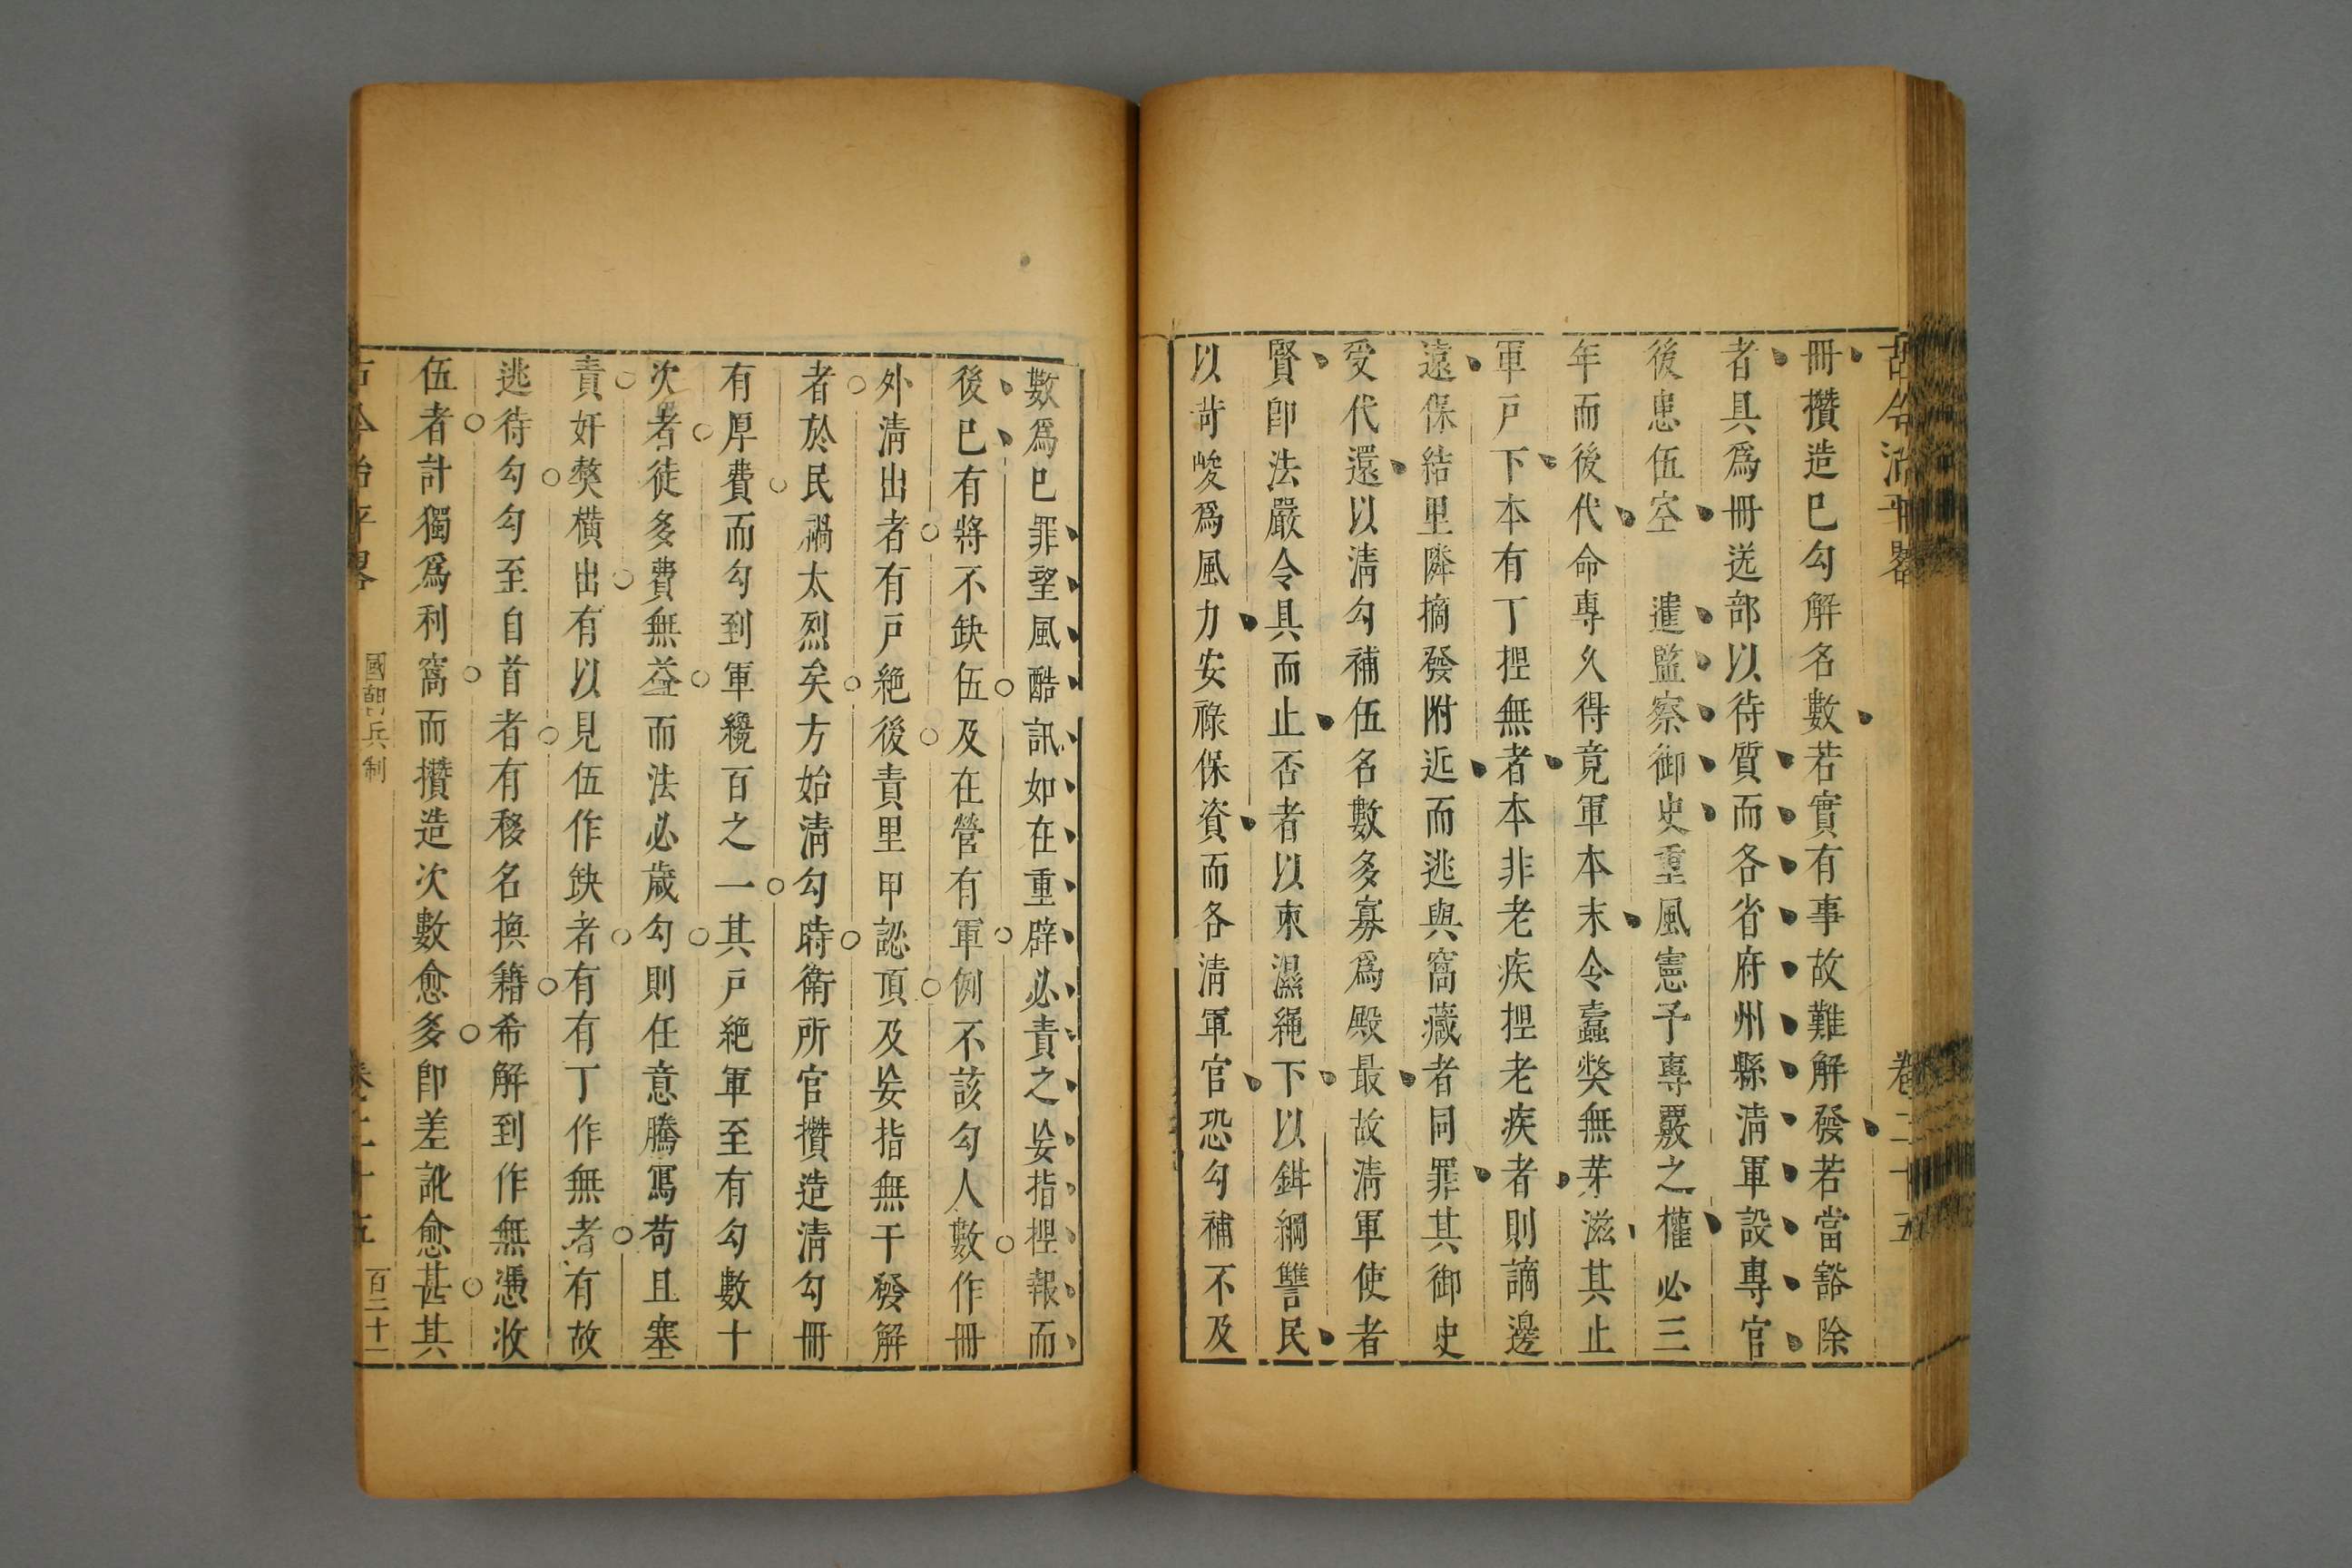 古今治平畧 卷二十五
冊攢造已勾解名數若實有事故難解發若當豁除
者具為冊送部以待質而各省府州縣清軍設專官
後患伍空 遣監察御史重風憲予專覈之權必三
年而後代命專久得竟軍本末令蠹獘無芽滋其止
軍戸下本有丁揑無者本非老疾揑老疾者則謫邊
遠保結里隣摘發附近而逃與窩藏者同罪其御史
受代還以清勾補伍名數多寡爲殿最故清軍使者
賢即法嚴令具而止否者以束濕繩下以鉗綱讐民
以苛峻爲風力安祿保資而各清軍官恐勾補不及
數爲已罪望風酷訊如在重辟必責之妄指揑報而
後已有將不缺伍及在營有軍例不該勾人數作冊
外清出者有戸絶後責里甲認頂及妄指無干發解
者於民禍太烈矣方始清勾時衛所官攢造清勾冊
有厚費而勾到軍纔百之一其戸絶軍至有勾數十
次者徒多費無益而法必歲勾則任意騰寫苟且塞
責奸獘橫出有以見伍作缺者有有丁作無者有故
逃待勾勾至自首者有移名換籍希解到作無憑收
伍者計獨爲利窩而攢造次數愈多即差訛愈甚其
古今治平畧 國朝兵制 卷二十五 百二十一